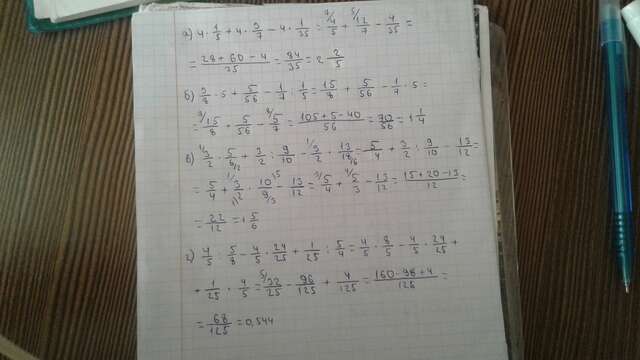 а) 4 · 1/5 + 4 · 3/7 − 4 · 1/35 = ⁷⁾4/5 + ⁵⁾12/7 − 4/35 =
= (28 + 60 − 4)/35 = 84/35 = 2 2/5
б) 3/8 · 5 + 5/56 − 1/7 : 1/5 = 15/8 + 5/56 − 1/7 · 5 =
= ⁷⁾15/8 + 5/56 − ⁸⁾5/7 = (105 + 5 − 40)/56 = 70/56 = 1 1/4
в) 3/2 · 5/6 + 3/2 : 9/10 − 3/2 · 13/18 = 5/4 + 3/2 : 9/10 − 13/12 =
= 5/4 + 3/2 · 10/9 − 13/12 = ³⁾5/4 + ⁴⁾5/3 − 13/12 = (15 + 20 − 13)/12 =
= 22/12 = 1 5/6
г) 4/5 : 5/8 − 4/5 · 24/25 + 1/25 : 5/4 = 4/5 · 8/5 − 4/5 · 24/25 +
+ 1/25 · 4/5 = ⁵⁾32/25 − 96/125 + 4/125 = (160 − 96 + 4)/125 =
= 68/125 = 0,544